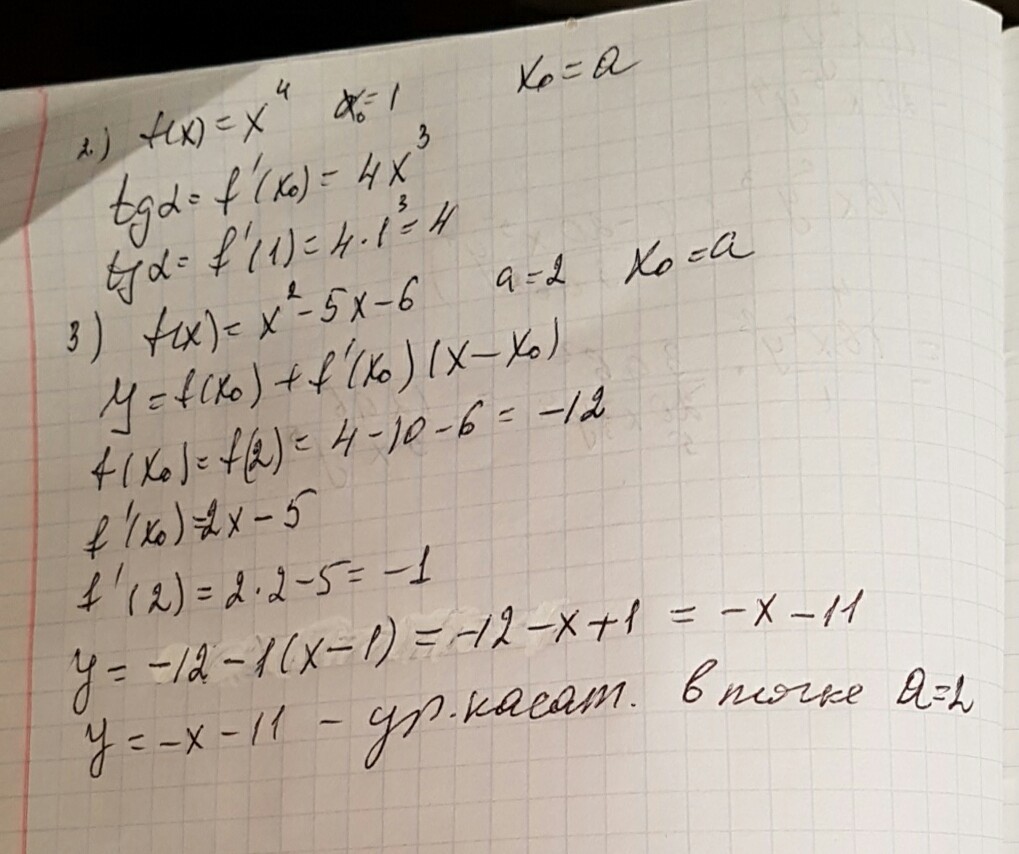 2.) f(x) = x⁴ x₀ = 1 x₀ = a
tg α = f'(x₀) = 4x³
tg α = f'(1) = 4·1³ = 4
3) f(x) = x² - 5x - 6 a = 2 x₀ = a
y = f(x₀) + f'(x₀)(x - x₀)
f(x₀) = f(2) = 4 - 10 - 6 = -12
f'(x₀) = 2x - 5
f'(2) = 2·2 - 5 = -1
y = -12 - 1(x - 1) = -12 - x + 1 = -x - 11
y = -x - 11 - ур. касат. в точке a = 2